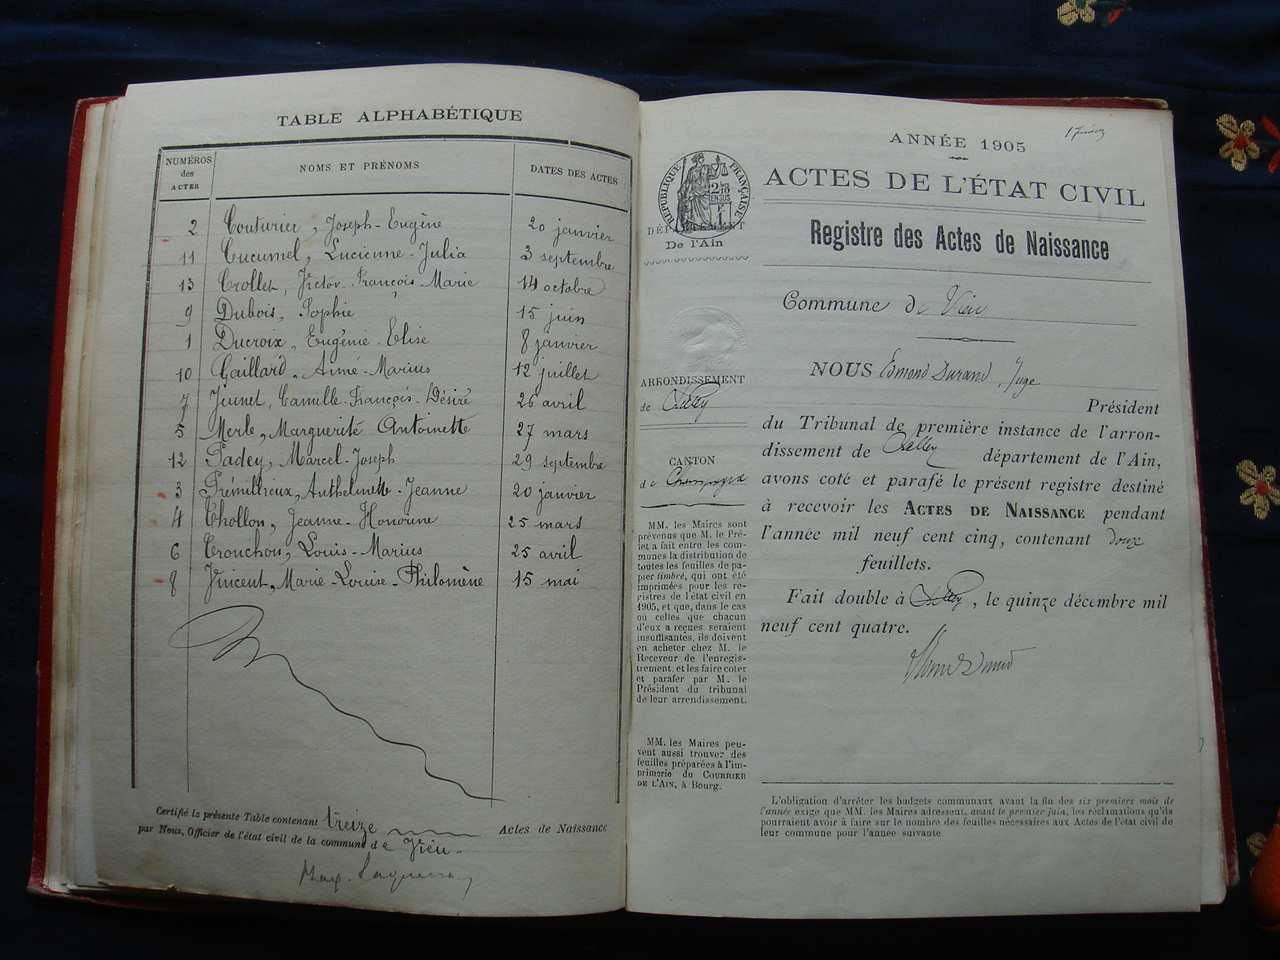 TABLE ALPHABÉTIQUE
NUMÉROS des ACTES NOMS ET PRÉNOMS DATES DES ACTES
2 Couturier, Joseph-Eugène 20 janvier
11 Cucumel, Lucienne-Julia 3 septembre
13 Crollet, Victor-François-Marie 14 octobre
9 Dubois, Sophie 15 juin
1 Ducroix, Eugénie-Elise 8 janvier
10 Gaillard, Aimé-Marius 12 juillet
7 Jeunet, Camille-François-Désiré 26 avril
5 Merle, Marguerite Antoinette 27 mars
12 Padey, Marcel-Joseph 29 septembre
3 Prémillieux, Anthelmette-Jeanne 20 janvier
4 Thollon, Jeanne-Honorine 25 mars
6 Trouchon, Louis-Marius 25 avril
8 Vincent, Marie-Louise-Philomène 15 mai
Certifié la présente Table contenant treize Actes de Naissance
par Nous, Officier de l'état civil de la commune de Vieu.
ANNÉE 1905
ACTES DE L'ÉTAT CIVIL
Registre des Actes de Naissance
Commune de Vieu
NOUS Edmond Durand, Juge
Président
du Tribunal de première instance de l'arron-
dissement de Belley département de l'Ain,
avons coté et parafé le présent registre destiné
à recevoir les ACTES DE NAISSANCE pendant
l'année mil neuf cent cinq, contenant douze
feuillets.
Fait double à Belley, le quinze décembre mil
neuf cent quatre.
L'obligation d'arrêter les budgets communaux avant la fin des six premiers mois de
l'année exige que MM. les Maires adressent, avant le premier juin, les réclamations qu'ils
pourraient avoir à faire sur le nombre des feuilles nécessaires aux Actes de l'état civil de
leur commune pour l'année suivante.
RÉPUBLIQUE FRANÇAISE
DÉPARTEMENT
De l'Ain
ARRONDISSEMENT
de Belley
CANTON
de Champagne
MM. les Maires sont
prévenus que M. le Pré-
fet a fait entre les com-
munes la distribution de
toutes les feuilles de pa-
pier timbré, qui ont été
imprimées pour les re-
gistres de l'état civil en
1905, et que, dans le cas
où celles que chacun
d'eux a reçues seraient
insuffisantes, ils doivent
en acheter chez M. le
Receveur de l'enregis-
trement, et les faire coter
et parafer par M. le
Président du tribunal
de leur arrondissement.
MM. les Maires peu-
vent aussi trouver des
feuilles préparées à l'im-
primerie du COURRIER
DE L'AIN, à Bourg.